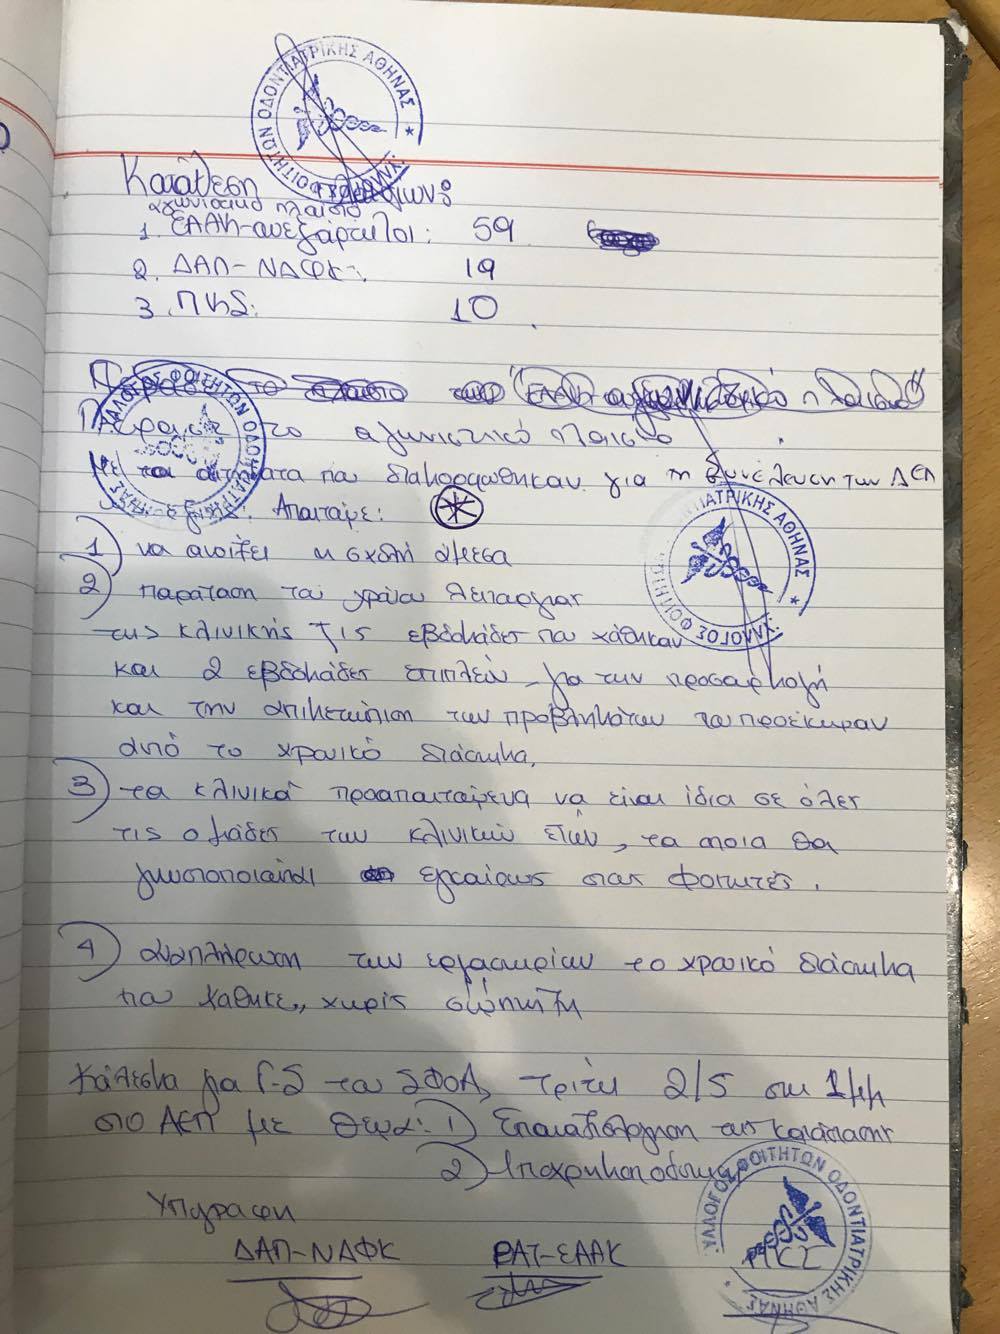 ΣΥΛΛΟΓΟΣ ΦΟΙΤΗΤΩΝ ΟΔΟΝΤΙΑΤΡΙΚΗΣ ΑΘΗΝΑΣ *
Κατάθεση πλαισίων:
αγωνιστικό πλαίσιο
1. ΕΑΑΚ-ανεξάρτητοι: 59
2. ΔΑΠ-ΝΔΦΚ: 19
3. ΠΚΣ: 10
Πέρασε το αγωνιστικό πλαίσιο
ΣΥΛΛΟΓΟΣ ΦΟΙΤΗΤΩΝ ΟΔΟΝΤΙΑΤΡΙΚΗΣ ΑΘΗΝΑΣ
Με τα αιτήματα που διαμορφώθηκαν για τη συνέλευση των ΔΕΠ
Απαιτούμε:
ΣΥΛΛΟΓΟΣ ΦΟΙΤΗΤΩΝ ΟΔΟΝΤΙΑΤΡΙΚΗΣ ΑΘΗΝΑΣ *
1) να ανοίξει η σχολή άμεσα
2) παράταση του χρόνου λειτουργίας
της κλινικής τις εβδομάδες που χάθηκαν
και 2 εβδομάδες επιπλέον για την προσαρμογή
και την αντιμετώπιση των προβλημάτων που προέκυψαν
από το χρονικό διάστημα.
3) τα κλινικά προαπαιτούμενα να είναι ίδια σε όλες
τις ομάδες των κλινικών ετών, τα οποία θα
γνωστοποιούνται εγκαίρως στους φοιτητές.
4) αναπλήρωση των εργαστηρίων το χρονικό διάστημα
που χάθηκε, χωρίς σύμπτυξη
Κάλεσμα για Γ.Σ του ΣΦΟΑ, τρίτη 2/5 στη 1μμ
στο ΑΕΠ με θέμα: 1) Επαναξιολόγηση της κατάστασης
2)
Υπογραφή
ΔΑΠ-ΝΔΦΚ ΡΑΠ-ΕΑΑΚ ΠΚΣ
ΣΥΛΛΟΓΟΣ ΦΟΙΤΗΤΩΝ ΟΔΟΝΤΙΑΤΡΙΚΗΣ ΑΘΗΝΑΣ *